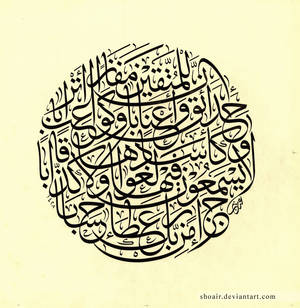 إن للمتقين مفازا
حدائق وأعنابا وكواعب أترابا
وكأسا دهاقا
لا يسمعون فيها لغوا ولا كذابا
جزاء من ربك عطاء حسابا
shoair.deviantart.com